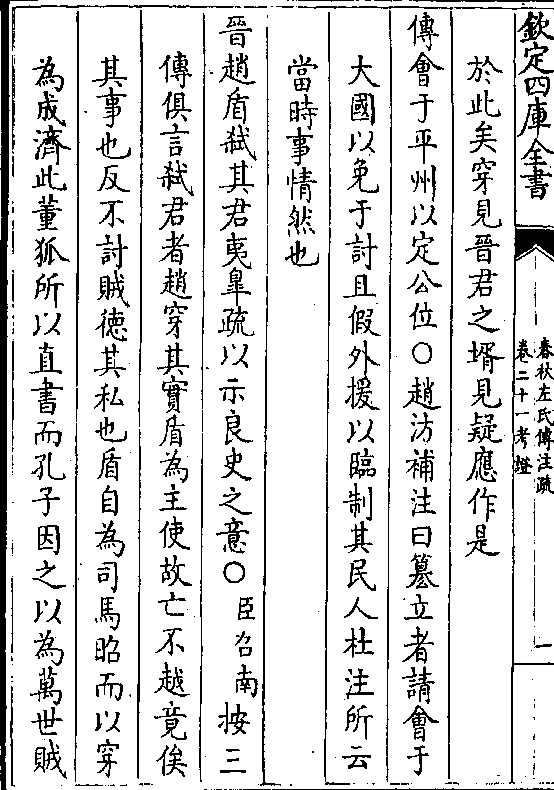 欽定四庫全書
春秋左氏傳注疏
卷二十一考證
一
於此矣穿見晉君之壻見疑應作是
傳會于平州以定公位〇趙汸補注曰簒立者請會于
大國以免于討且假外援以臨制其民人杜注所云
當時事情然也
晉趙盾弑其君夷臯疏以示良史之意〇臣召南按三
傳俱言弑君者趙穿其實盾為主使故亡不越竟俟
其事也反不討賊徳其私也盾自為司馬昭而以穿
為成濟此董狐所以直書而孔子因之以為萬世賊